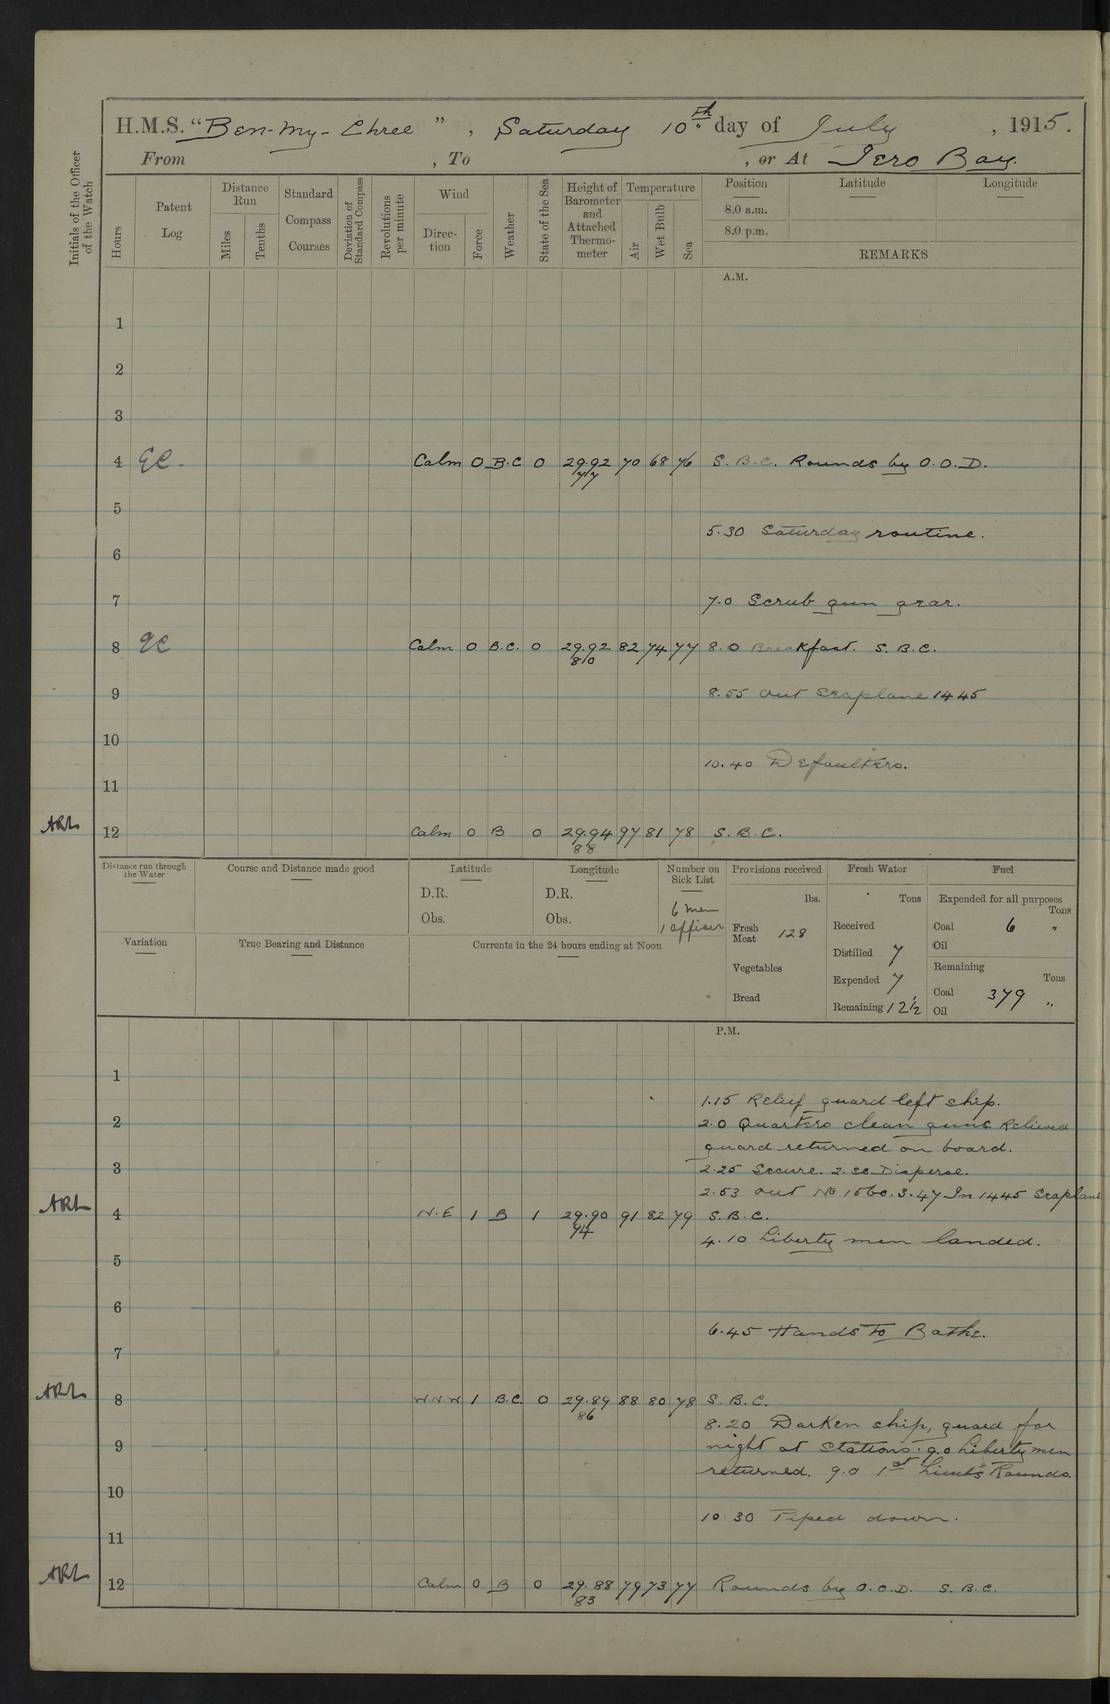 H.M.S. "Ben-my-Chree", Saturday 10th day of July, 1915.
From , To , or At Iero Bay.
Initials of the Officer of the Watch
Hours
Patent Log
Distance Run
Miles
Tenths
Standard Compass Courses
Deviation of Standard Compass
Revolutions per minute
Wind
Direction
Force
Weather
State of the Sea
Height of Barometer and Attached Thermometer
Temperature
Air
Wet Bulb
Sea
Position
8.0 a.m.
8.0 p.m.
Latitude
Longitude
REMARKS
A.M.
1
2
3
4 Calm 0 B.C 0 29.92 70 68 76 S.B.C. Rounds by O.O.D.
77
5
5.30 Saturday routine.
6
7 7.0 Scrub gun gear.
8 Calm 0 B.C. 0 29.92 82 74 77 8.0 Breakfast. S.B.C.
80
9 8.55 out seaplane 1445
10
10.40 Defaulters.
11
ARL 12 Calm 0 B 0 29.94 97 81 78 S.B.C.
88
Distance run through the Water
Course and Distance made good
Latitude
D.R.
Obs.
Longitude
D.R.
Obs.
Number on Sick List
6 men
1 officer
Provisions received
lbs.
Fresh Meat 128
Vegetables
Bread
Fresh Water
Tons
Received
Distilled 7
Expended 7
Remaining 12½
Fuel
Expended for all purposes
Tons
Coal 6 "
Oil
Remaining
Tons
Coal 379 "
Oil
Variation
True Bearing and Distance
Currents in the 24 hours ending at Noon
P.M.
1
1.15 Relief guard left ship.
2 2.0 Quarters clean guns Relieved
guard returned on board.
3 2.25 Secure. 2.30 Disperse.
2.53 out No 1560. 3.47 In 1445 Seaplane
ARL 4 N.E 1 B 1 29.90 91 82 79 S.B.C.
94
4.10 Liberty men landed.
5
6
6.45 Hands to Bathe.
7
ARL 8 WNW 1 B.C. 0 29.89 88 80 78 S.B.C.
86
8.20 Darken ship, guard for
9 night at stations. 9.0 Liberty men
returned. 9.0 1st Lieut's Rounds.
10
10.30 Piped down.
11
ARL 12 Calm 0 B 0 29.88 79 73 77 Rounds by O.O.D. S.B.C.
83